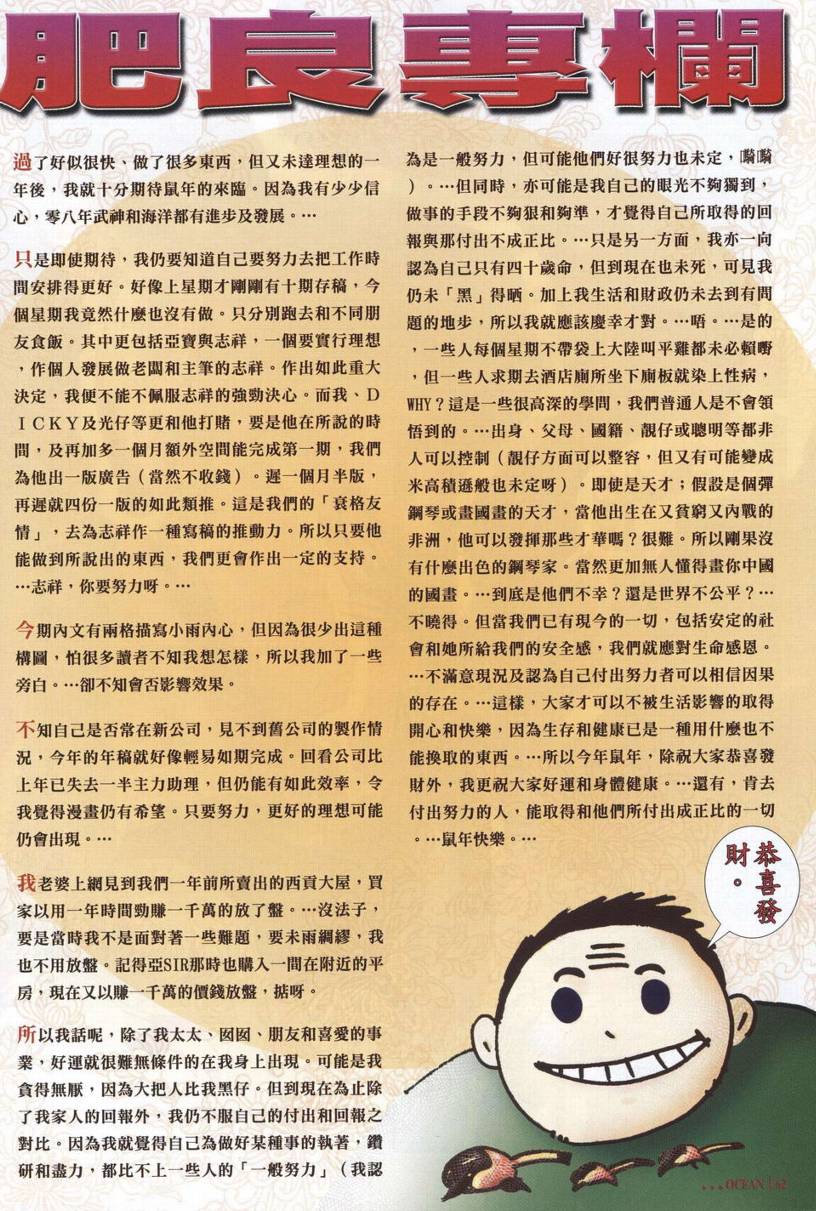 肥良專欄
過了好似很快、做了很多東西，但又未達理想的一
年後，我就十分期待鼠年的來臨。因為我有少少信
心，零八年武神和海洋都有進步及發展。…
只是即使期待，我仍要知道自己要努力去把工作時
間安排得更好。好像上星期才剛剛有十期存稿，今
個星期我竟然什麼也沒有做。只分別跑去和不同朋
友食飯。其中更包括亞寶與志祥，一個要實行理想
，作個人發展做老闆和主筆的志祥。作出如此重大
決定，我便不能不佩服志祥的強勁決心。而我、Ｄ
ＩＣＫＹ及光仔等更和他打賭，要是他在所說的時
間，及再加多一個月額外空間能完成第一期，我們
為他出一版廣告（當然不收錢）。遲一個月半版，
再遲就四份一版的如此類推。這是我們的「衰格友
情」，去為志祥作一種寫稿的推動力。所以只要他
能做到所說出的東西，我們更會作出一定的支持。
…志祥，你要努力呀。…
今期內文有兩格描寫小雨內心，但因為很少出這種
構圖，怕很多讀者不知我想怎樣，所以我加了一些
旁白。…卻不知會否影響效果。
不知自己是否常在新公司，見不到舊公司的製作情
況，今年的年稿就好像輕易如期完成。回看公司比
上年已失去一半主力助理，但仍能有如此效率，令
我覺得漫畫仍有希望。只要努力，更好的理想可能
仍會出現。…
我老婆上網見到我們一年前所賣出的西貢大屋，買
家以用一年時間勁賺一千萬的放了盤。…沒法子，
要是當時我不是面對著一些難題，要未雨綢繆，我
也不用放盤。記得亞SIR那時也購入一間在附近的平
房，現在又以賺一千萬的價錢放盤，掂呀。
所以我話呢，除了我太太、囡囡、朋友和喜愛的事
業，好運就很難無條件的在我身上出現。可能是我
貪得無厭，因為大把人比我黑仔。但到現在為止除
了我家人的回報外，我仍不服自己的付出和回報之
對比。因為我就覺得自己為做好某種事的執著，鑽
研和盡力，都比不上一些人的「一般努力」（我認
為是一般努力，但可能他們好很努力也未定，嘺嘺
）。…但同時，亦可能是我自己的眼光不夠獨到，
做事的手段不夠狠和夠準，才覺得自己所取得的回
報與那付出不成正比。…只是另一方面，我亦一向
認為自己只有四十歲命，但到現在也未死，可見我
仍未「黑」得晒。加上我生活和財政仍未去到有問
題的地步，所以我就應該慶幸才對。…唔。…是的
，一些人每個星期不帶袋上大陸叫平雞都未必賴嘢
，但一些人求期去酒店廁所坐下廁板就染上性病，
WHY？這是一些很高深的學問，我們普通人是不會領
悟到的。…出身、父母、國籍、靚仔或聰明等都非
人可以控制（靚仔方面可以整容，但又有可能變成
米高積遜般也未定呀）。即使是天才；假設是個彈
鋼琴或畫國畫的天才，當他出生在又貧窮又內戰的
非洲，他可以發揮那些才華嗎？很難。所以剛果沒
有什麼出色的鋼琴家。當然更加無人懂得畫你中國
的國畫。…到底是他們不幸？還是世界不公平？…
不曉得。但當我們已有現今的一切，包括安定的社
會和她所給我們的安全感，我們就應對生命感恩。
…不滿意現況及認為自己付出努力者可以相信因果
的存在。…這樣，大家才可以不被生活影響的取得
開心和快樂，因為生存和健康已是一種用什麼也不
能換取的東西。…所以今年鼠年，除祝大家恭喜發
財外，我更祝大家好運和身體健康。…還有，肯去
付出努力的人，能取得和他們所付出成正比的一切
。…鼠年快樂。…
恭喜發
財。
...OCEAN 1.62